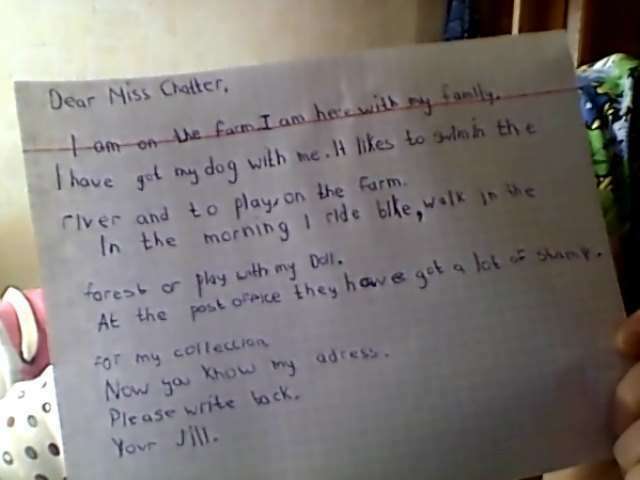 Dear Miss Chatter,
I am on the farm. I am here with my family.
I have got my dog with me. It likes to swim in the
river and to play, on the farm.
In the morning I ride bike, walk in the
forest or play with my Doll.
At the post office they have got a lot of stamp.
for my collection
Now you know my adress.
Please write back.
Your Jill.